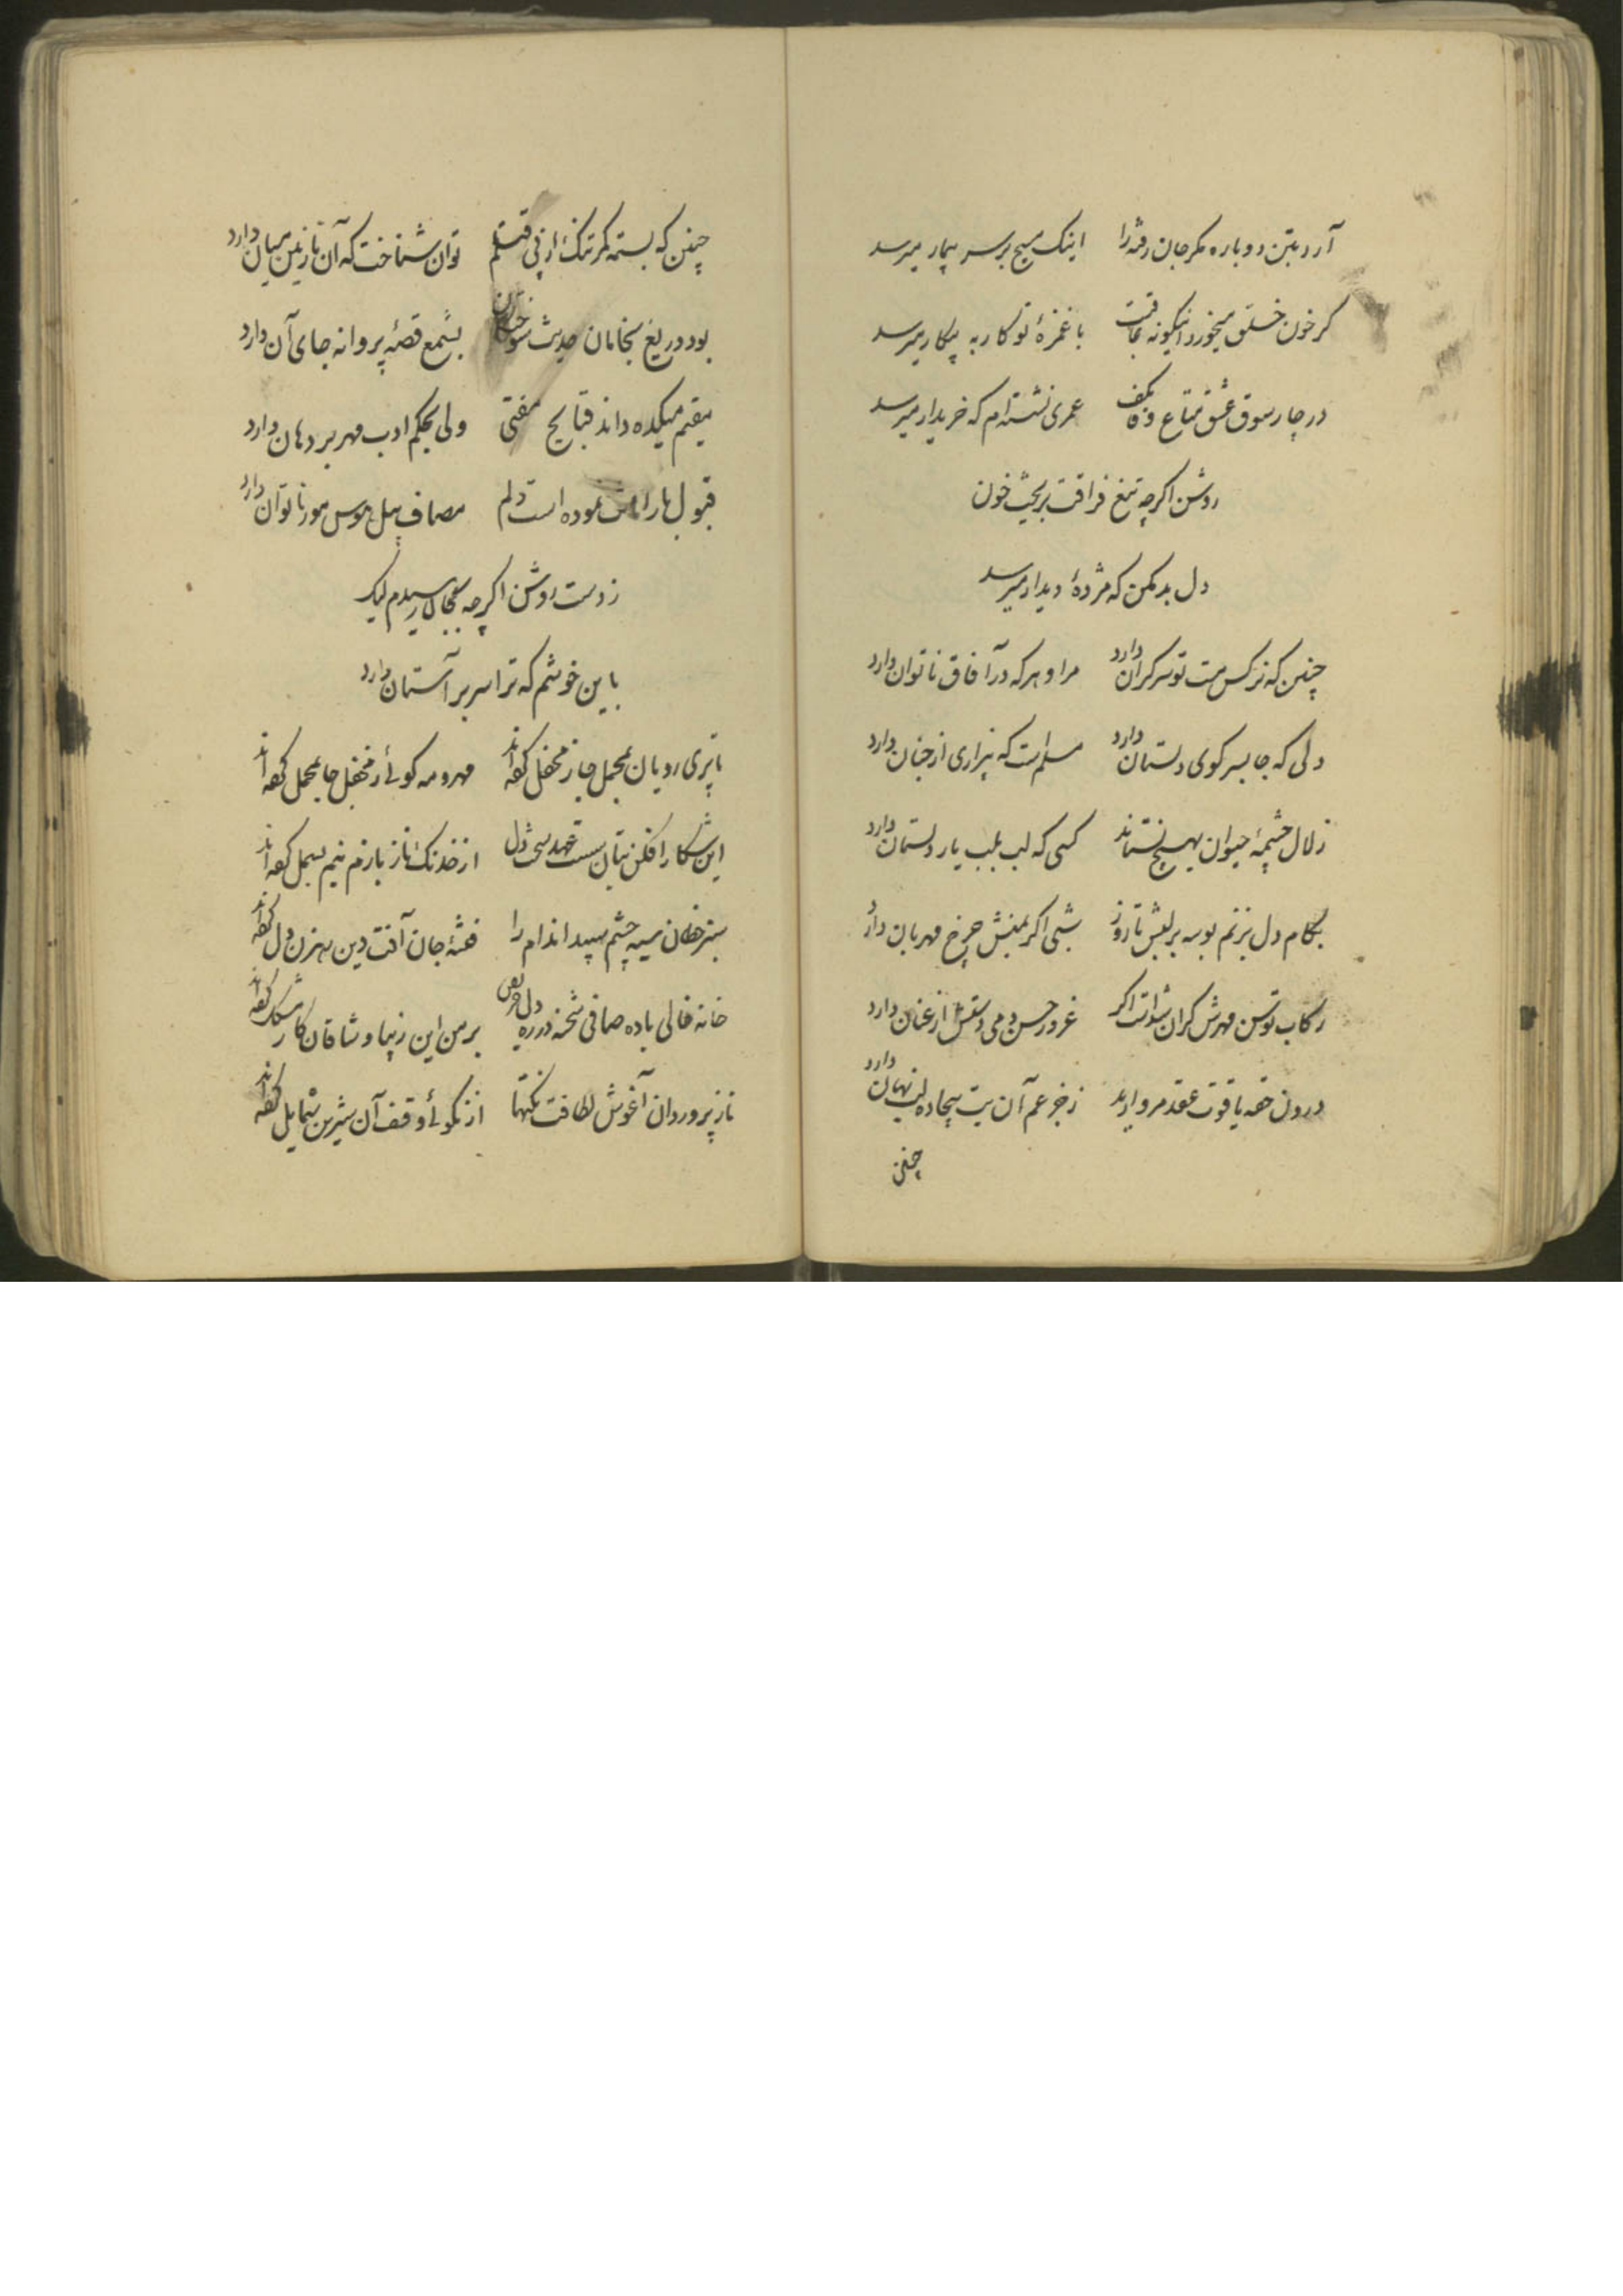 آرد بتن دوباره مگر جان رفته را اینک مسیح بر سر بیمار میرسد
گر خون خلق میخورد اینگونه عاقبت با غمزهٔ تو کار به پیکار میرسد
در چار سوق عشق متاع وفا بکف عمری نشسته‌ام که خریدار میرسد
روشن اگرچه تیغ فراقت بریخت خون
دل بد مکن که مژدهٔ دیدار میرسد
چنین که نرگس مست تو سر گران دارد مرا و هر که در آفاق ناتوان دارد
دلی که جا بسر کوی دلستان دارد مسلم است که بیزاری از جنان دارد
زلال چشمهٔ حیوان بهیچ نستاند کسی که لب بلب یار دلستان دارد
بکام دل بزنم بوسه بر لبش تا روز شبی اگر بمنش چرخ مهربان دارد
رکاب توسن مهرش گران شدست اگر غرور حسن دمی دستش از عنان دارد
درون حقه یاقوت عقد مروارید ز خرعم آن بت بیجاده لب نهان دارد
چنین
چنین که بسته کمر تنک از پی قتلم توان شناخت که آن نازنین میان دارد
بود دریغ بخامان حدیث سوختگان بشمع قصهٔ پروانه جای آن دارد
مقیم میکده داند قبایح مفتی ولی بحکم ادب مهر بر دهان دارد
قبول بار نموده است دلم مصاف پیل هوس مور ناتوان دارد
ز دست روشن اگرچه رسیدم لیک
باین خوشم که ترا سر بر آستان دارد
تا پری رویان بمحمل جا ز محفل کرده‌اند مهر و مه گوئی ز محفل جا بمحمل کرده‌اند
این شکار افکن بتان سست عهد سخت دل از خدنک ناز بازم نیم بسمل کرده‌اند
سبز خطان سیه چشم سپید اندام را فتنهٔ جان آفت دین رهزن دل کرده‌اند
خانه خالی باده صافی شحنه در ره دل حریص بر من این زیبا و شاقان کار مشکل کرده‌اند
ناز پروردان آغوش لطافت نکتها از نکوئی وقف آن شیرین شمایل کرده‌اند